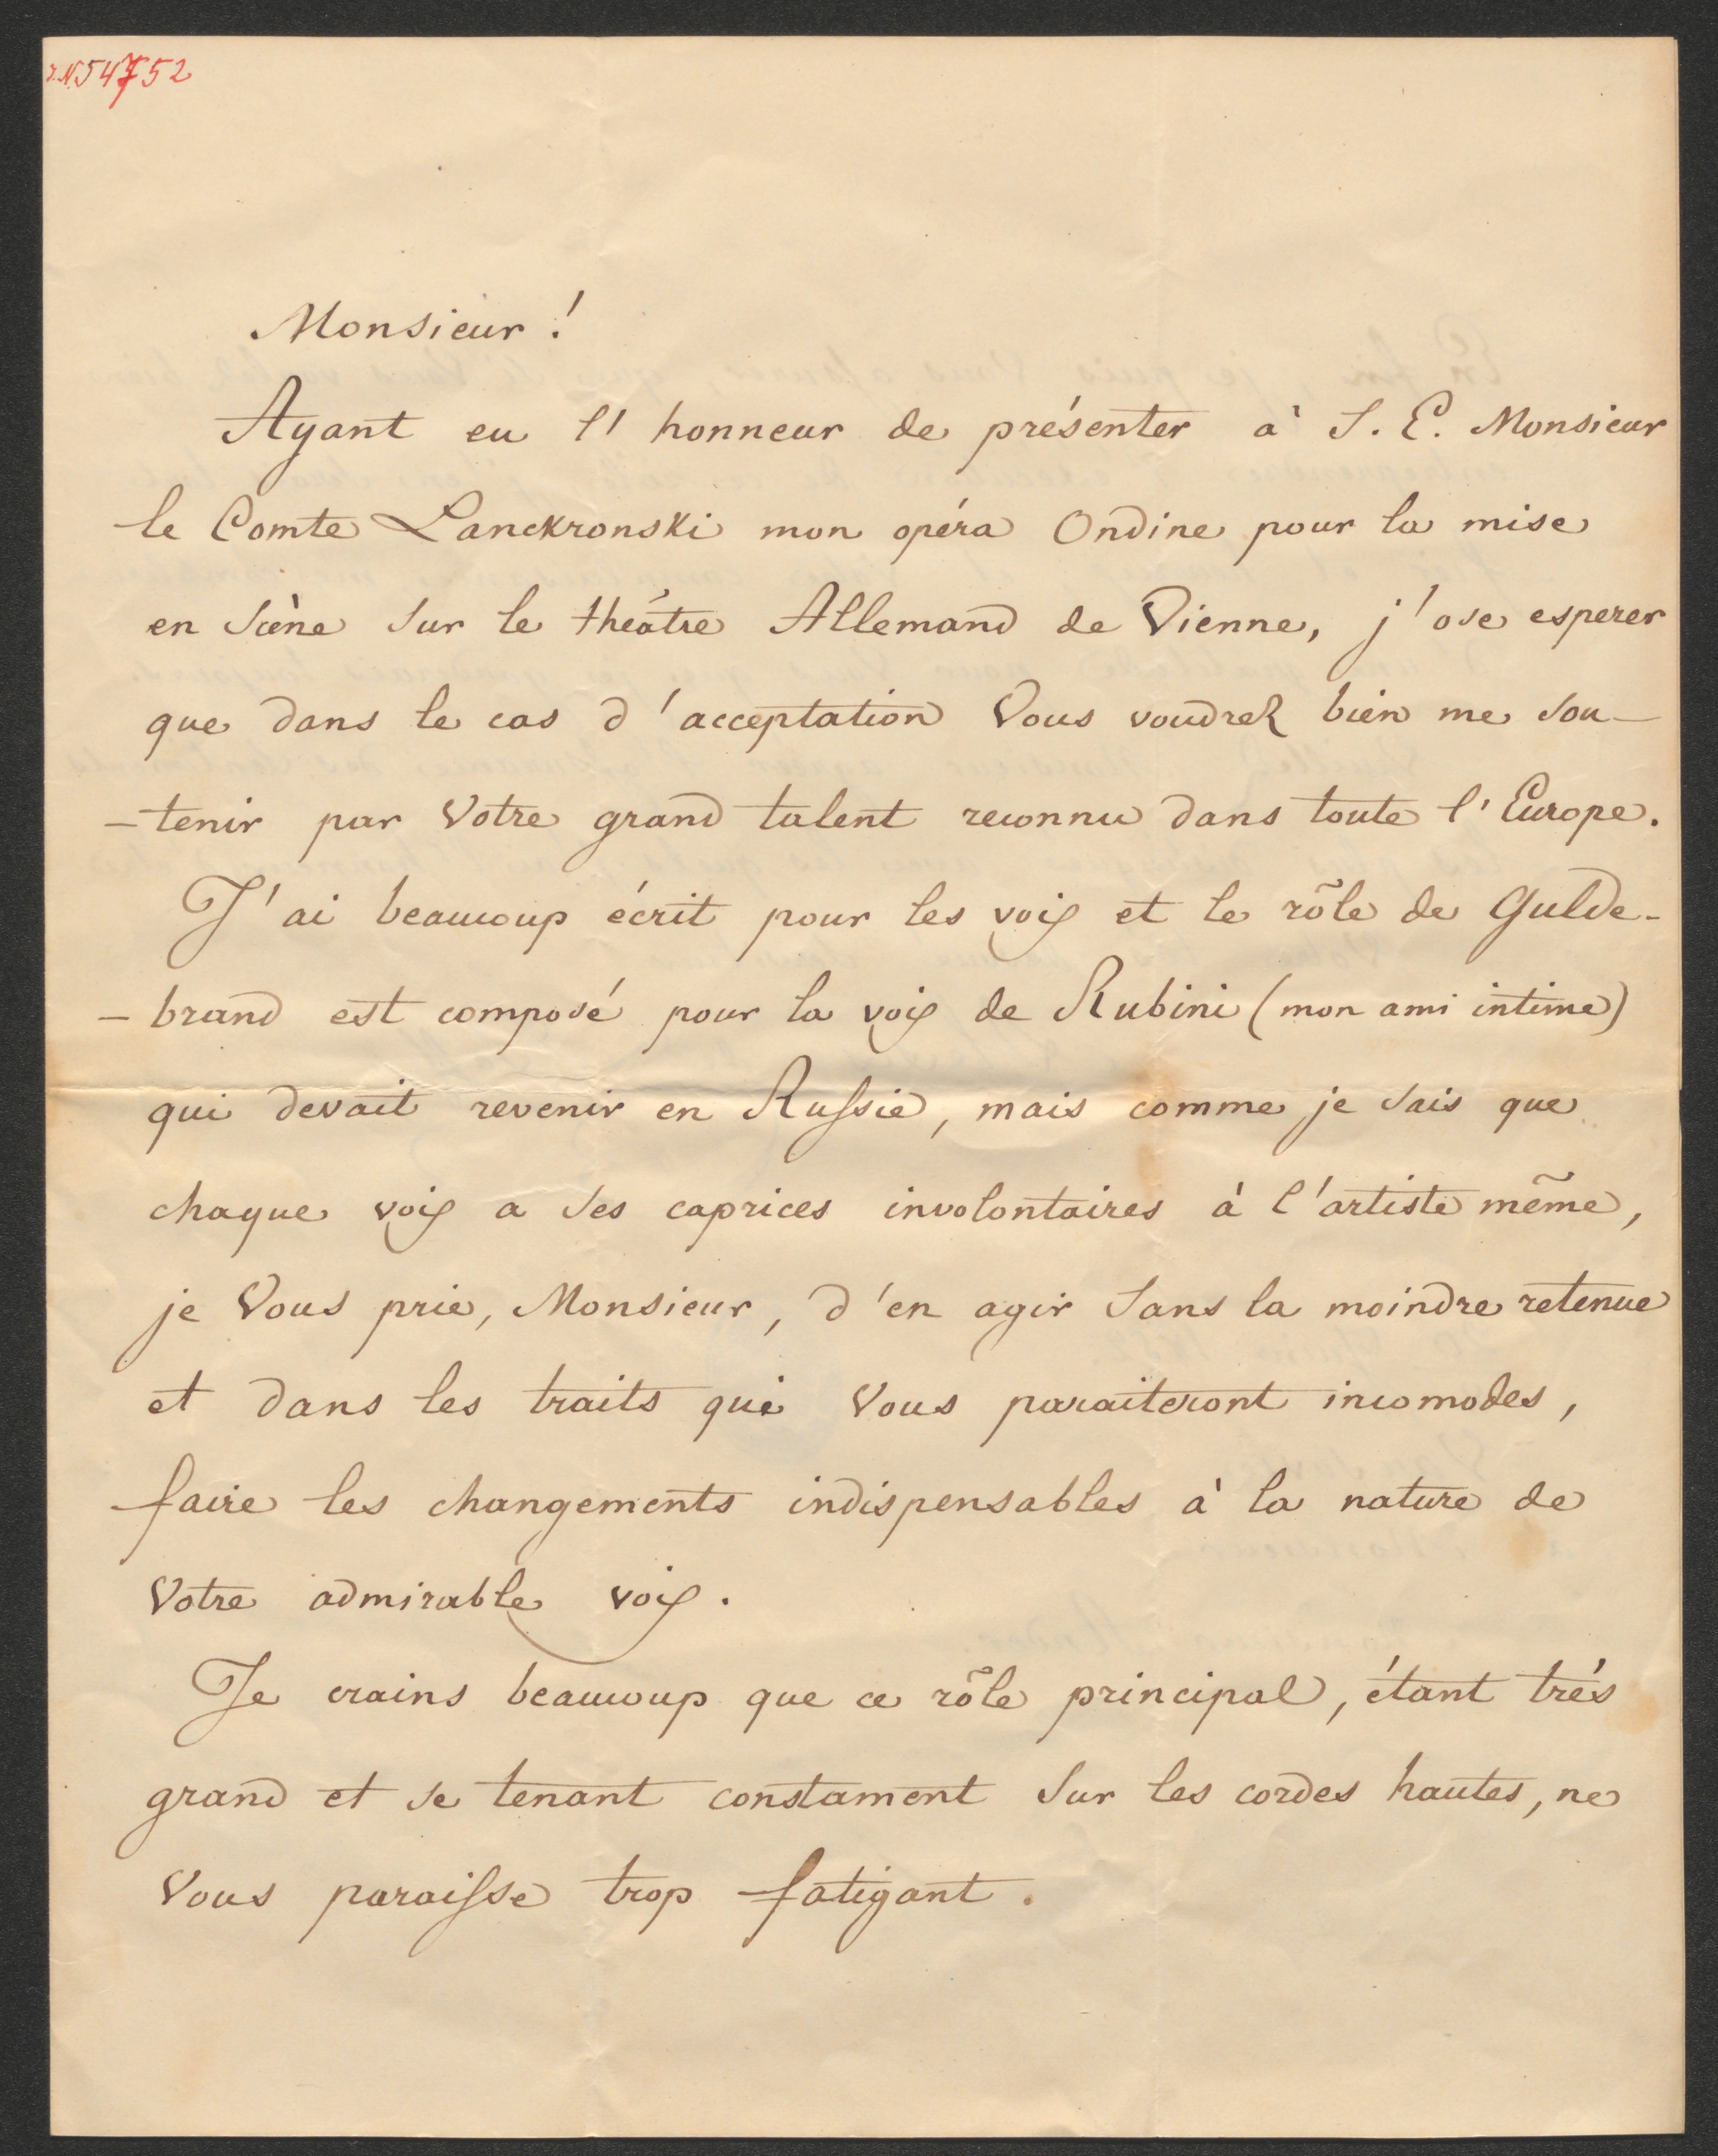 I.N 54752
Monsieur!
Ayant eu l'honneur de présenter à S. E. Monsieur
le Comte Lanckronski mon opéra Ondine pour la mise
en scène sur le théâtre Allemand de Vienne, j'ose esperer
que dans le cas d'acceptation Vous voudrez bien me sou-
-tenir par Votre grand talent reconnu dans toute l'Europe.
J'ai beaucoup écrit pour les voix et le rôle de Gulde-
-brand est composé pour la voix de Rubini (mon ami intime)
qui devait revenir en Russie, mais comme je sais que
chaque voix a ses caprices involontaires à l'artiste même,
je Vous prie, Monsieur, d'en agir sans la moindre retenue
et dans les traits qui Vous paraiteront incomodes,
faire les changements indispensables à la nature de
Votre admirable voix.
Je crains beaucoup que ce rôle principal, étant trés
grand et se tenant constament sur les cordes hautes, ne
Vous paraisse trop fatigant.